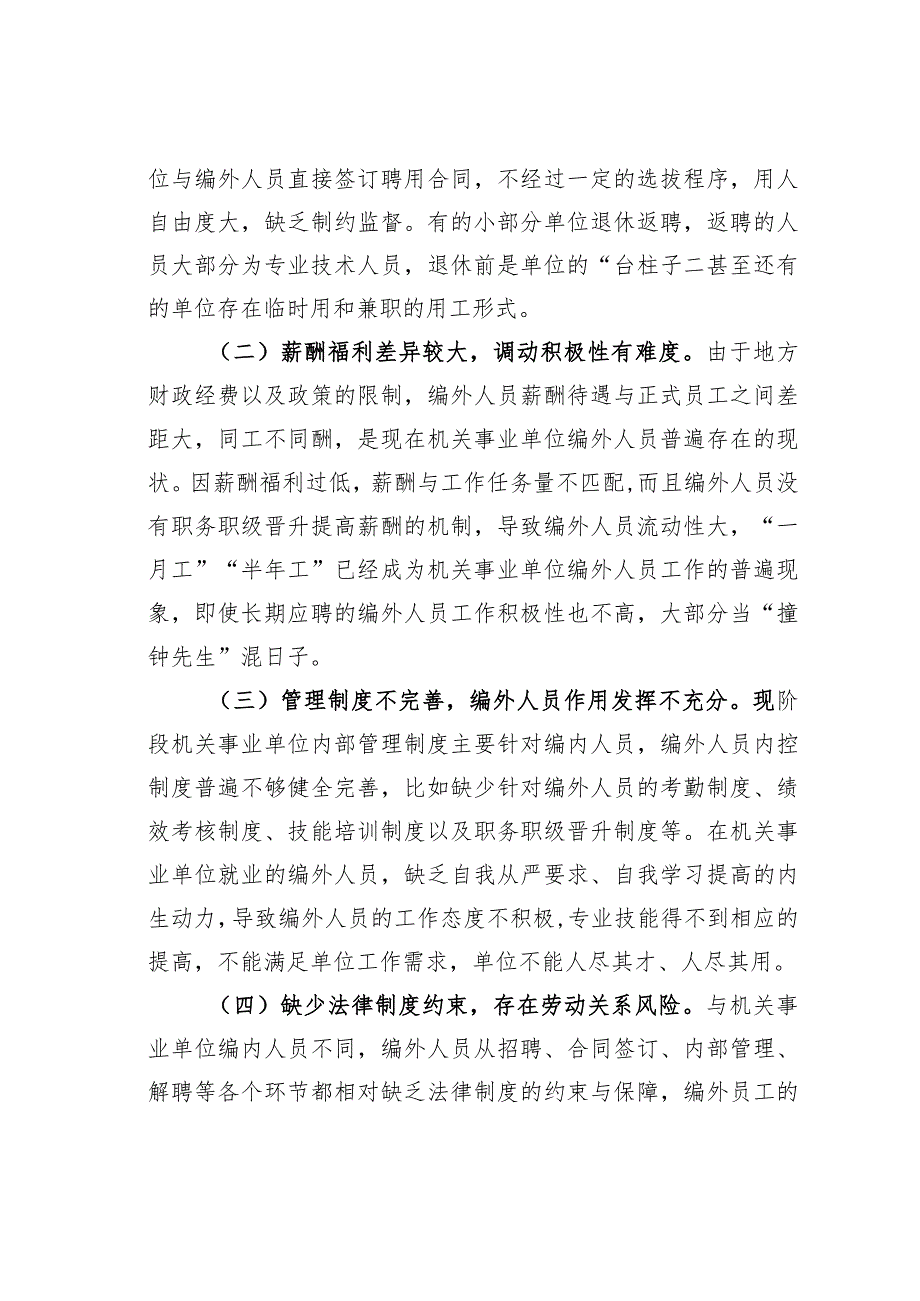 位与编外人员直接签订聘用合同，不经过一定的选拔程序，用人
自由度大，缺乏制约监督。有的小部分单位退休返聘，返聘的人
员大部分为专业技术人员，退休前是单位的“台柱子二甚至还有
的单位存在临时用和兼职的用工形式。
（二）薪酬福利差异较大，调动积极性有难度。由于地方
财政经费以及政策的限制，编外人员薪酬待遇与正式员工之间差
距大，同工不同酬，是现在机关事业单位编外人员普遍存在的现
状。因薪酬福利过低，薪酬与工作任务量不匹配,而且编外人员没
有职务职级晋升提高薪酬的机制，导致编外人员流动性大，“一
月工”“半年工”已经成为机关事业单位编外人员工作的普遍现
象，即使长期应聘的编外人员工作积极性也不高，大部分当“撞
钟先生”混日子。
（三）管理制度不完善，编外人员作用发挥不充分。现阶
段机关事业单位内部管理制度主要针对编内人员，编外人员内控
制度普遍不够健全完善，比如缺少针对编外人员的考勤制度、绩
效考核制度、技能培训制度以及职务职级晋升制度等。在机关事
业单位就业的编外人员，缺乏自我从严要求、自我学习提高的内
生动力,导致编外人员的工作态度不积极,专业技能得不到相应的
提高，不能满足单位工作需求，单位不能人尽其才、人尽其用。
（四）缺少法律制度约束，存在劳动关系风险。与机关事
业单位编内人员不同，编外人员从招聘、合同签订、内部管理、
解聘等各个环节都相对缺乏法律制度的约束与保障，编外员工的